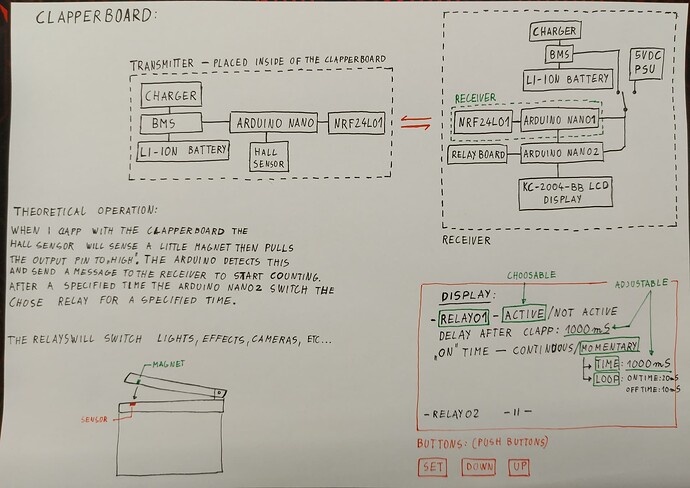 CLAPPERBOARD:
TRANSMITTER – PLACED INSIDE OF THE CLAPPERBOARD
CHARGER
BMS
ARDUINO NANO
NRF24L01
LI-ION BATTERY
HALL
SENSOR
CHARGER
BMS
5VDC
PSU
LI-ION BATTERY
RECEIVER
NRF24L01
ARDUINO NANO1
RELAY BOARD
ARDUINO NANO2
KC-2004-BB LCD
DISPLAY
RECEIVER
THEORETICAL OPERATION:
WHEN I CLAPP WITH THE CLAPPERBOARD THE
HALL SENSOR WILL SENSE A LITTLE MAGNET THEN PULLS
THE OUTPUT PIN TO „HIGH". THE ARDUINO DETECTS THIS
AND SEND A MESSAGE TO THE RECEIVER TO START COUNTING.
AFTER A SPECIFIED TIME THE ARDUINO NANO2 SWITCH THE
CHOSE RELAY FOR A SPECIFIED TIME.
THE RELAYS WILL SWITCH LIGHTS, EFFECTS, CAMERAS, ETC...
MAGNET
SENSOR
CHOOSABLE
ADJUSTABLE
DISPLAY:
- RELAY01 - ACTIVE/NOT ACTIVE
DELAY AFTER CLAPP: 1000mS
„ON" TIME – CONTINOUS/MOMENTARY
TIME: 1000mS
LOOP: ON TIME: 20mS
OFF TIME: 10mS
- RELAY02 - 11 -
BUTTONS: (PUSH BUTTONS)
SET DOWN UP